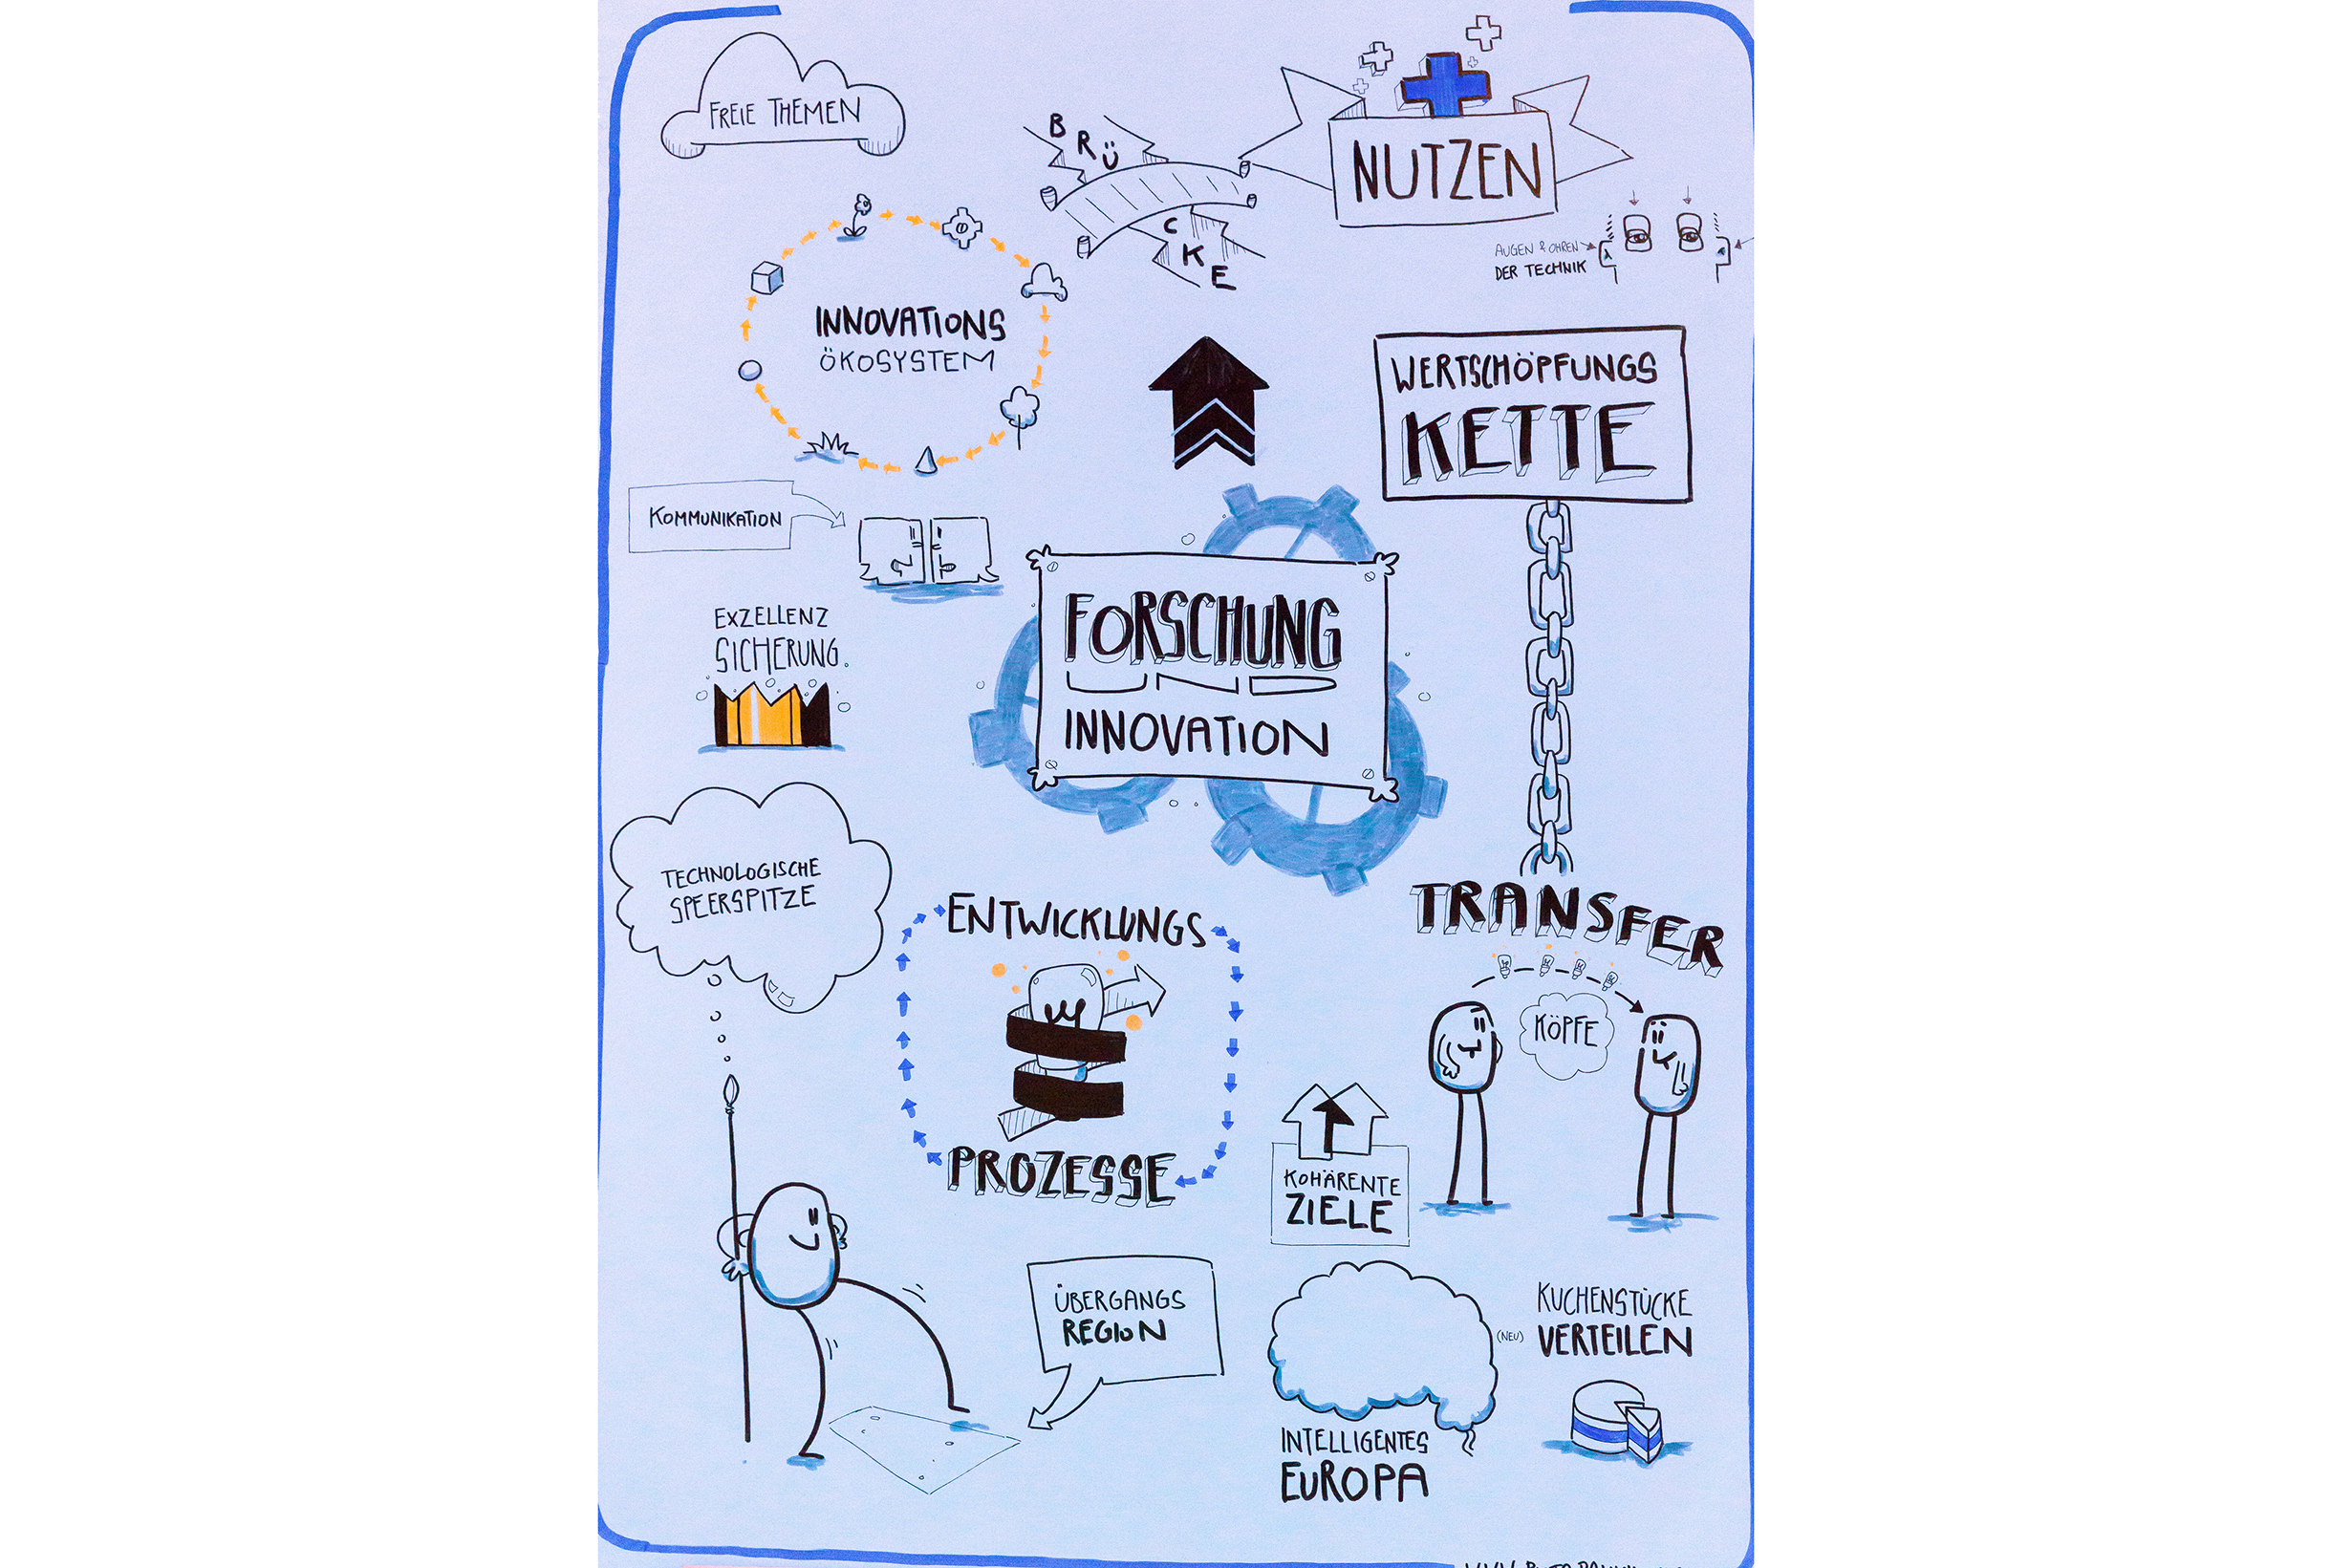 FREIE THEMEN
BRÜ
CKE
NUTZEN
AUGEN & OHREN
DER TECHNIK
INNOVATIONS
ÖKOSYSTEM
WERTSCHÖPFUNGS
KETTE
KOMMUNIKATION
EXZELLENZ
SICHERUNG.
FORSCHUNG
UND
INNOVATION
TECHNOLOGISCHE
SPEERSPITZE
ENTWICKLUNGS
PROZESSE
TRANSFER
KÖPFE
KOHÄRENTE
ZIELE
ÜBERGANGS
REGION
KUCHENSTÜCKE
(NEU) VERTEILEN
INTELLIGENTES
EUROPA